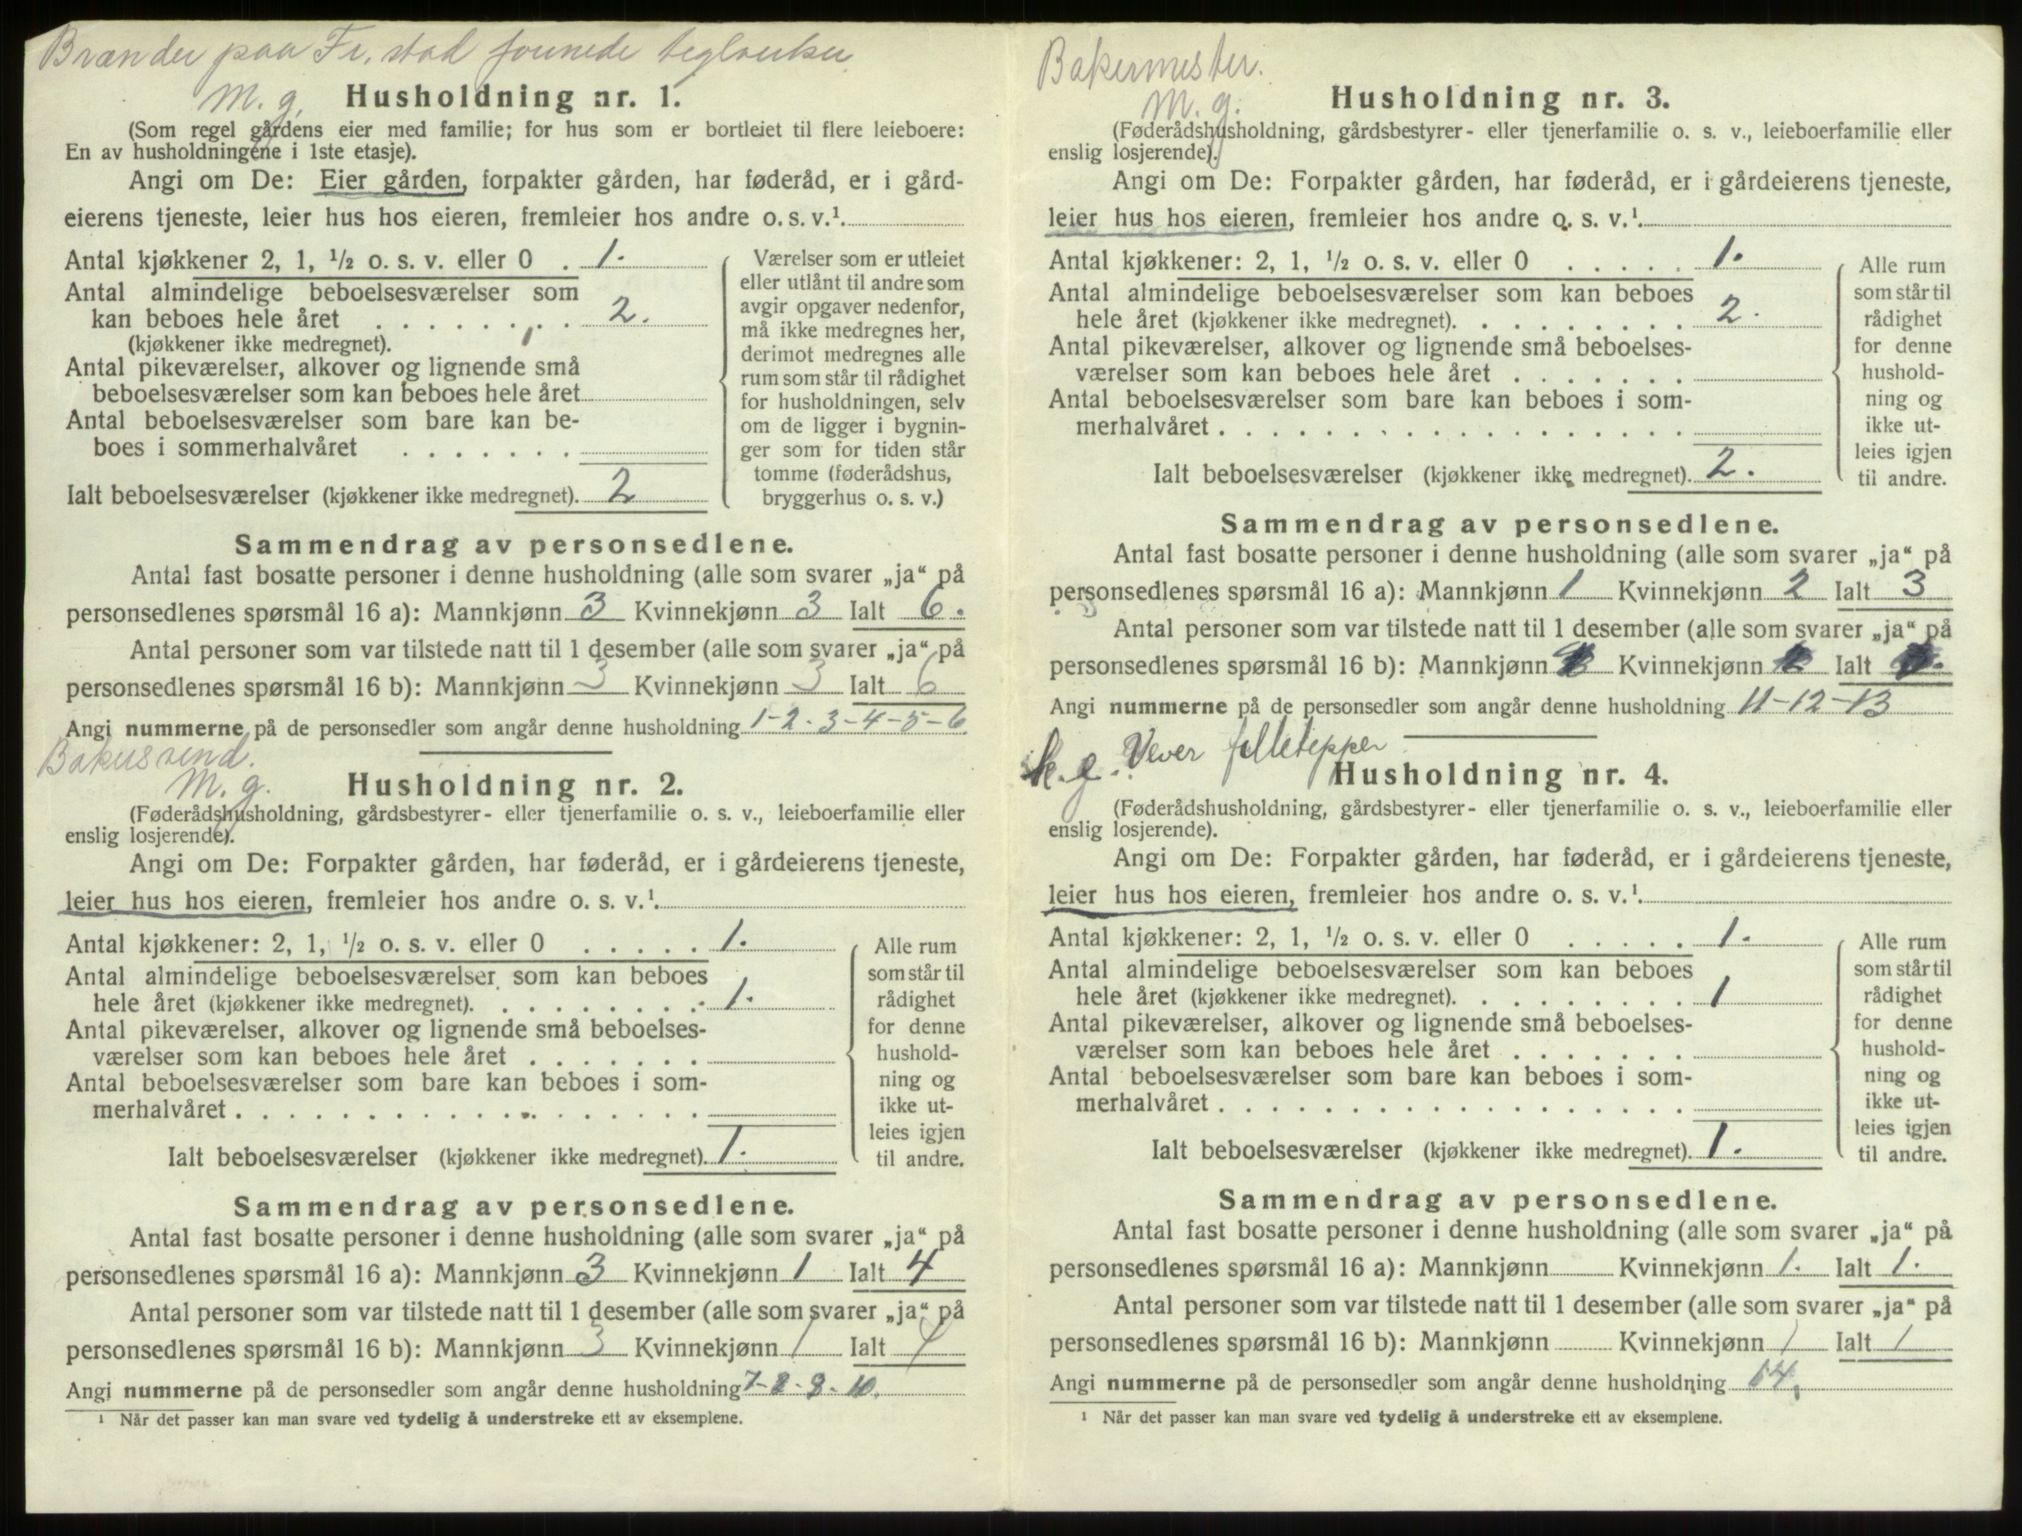 Brænder paa Fr.stad forenede teglverker
M. g. Husholdning nr. 1.
(Som regel gårdens eier med familie; for hus som er bortleiet til flere leieboere:
En av husholdningene i 1ste etasje).
Angi om De: Eier gården, forpakter gården, har føderåd, er i gård-
eierens tjeneste, leier hus hos eieren, fremleier hos andre o. s. v.¹
Antal kjøkkener 2, 1, ½ o. s. v. eller 0 . 1.
Antal almindelige beboelsesværelser som
kan beboes hele året . . . . . . . . 2.
(kjøkkener ikke medregnet).
Antal pikeværelser, alkover og lignende små
beboelsesværelser som kan beboes hele året
Antal beboelsesværelser som bare kan be-
boes i sommerhalvåret . . . . . . .
Ialt beboelsesværelser (kjøkkener ikke medregnet). 2
Værelser som er utleiet
eller utlånt til andre som
avgir opgaver nedenfor,
må ikke medregnes her,
derimot medregnes alle
rum som står til rådighet
for husholdningen, selv
om de ligger i bygnin-
ger som for tiden står
tomme (føderådshus,
bryggerhus o. s. v.)
Sammendrag av personsedlene.
Antal fast bosatte personer i denne husholdning (alle som svarer „ja“ på
personsedlenes spørsmål 16 a): Mannkjønn 3 Kvinnekjønn 3 Ialt 6.
Antal personer som var tilstede natt til 1 desember (alle som svarer „ja“ på
personsedlenes spørsmål 16 b): Mannkjønn 3 Kvinnekjønn 3 Ialt 6
Angi nummerne på de personsedler som angår denne husholdning 1-2-3-4-5-6
Bakersvend.
M. g. Husholdning nr. 2.
(Føderådshusholdning, gårdsbestyrer- eller tjenerfamilie o. s. v., leieboerfamilie eller
enslig losjerende).
Angi om De: Forpakter gården, har føderåd, er i gårdeierens tjeneste,
leier hus hos eieren, fremleier hos andre o. s. v.¹
Antal kjøkkener: 2, 1, ½ o. s. v. eller 0 . . . . . 1.
Antal almindelige beboelsesværelser som kan beboes
hele året (kjøkkener ikke medregnet). . . . . . . . . 1.
Antal pikeværelser, alkover og lignende små beboelses-
værelser som kan beboes hele året . . . . . . .
Antal beboelsesværelser som bare kan beboes i som-
merhalvåret . . . . . . . . . . . . . . . . .
Ialt beboelsesværelser (kjøkkener ikke medregnet). 1.
Alle rum
som står til
rådighet
for denne
hushold-
ning og
ikke ut-
leies igjen
til andre.
Sammendrag av personsedlene.
Antal fast bosatte personer i denne husholdning (alle som svarer „ja“ på
personsedlenes spørsmål 16 a): Mannkjønn 3 Kvinnekjønn 1 Ialt 4
Antal personer som var tilstede natt til 1 desember (alle som svarer „ja“ på
personsedlenes spørsmål 16 b): Mannkjønn 3 Kvinnekjønn 1 Ialt 4
Angi nummerne på de personsedler som angår denne husholdning 7-8-9-10.
¹ Når det passer kan man svare ved tydelig å understreke ett av eksemplene.
Bakermester.
M. g. Husholdning nr. 3.
(Føderådshusholdning, gårdsbestyrer- eller tjenerfamilie o. s. v., leieboerfamilie eller
enslig losjerende).
Angi om De: Forpakter gården, har føderåd, er i gårdeierens tjeneste,
leier hus hos eieren, fremleier hos andre o. s. v.¹
Antal kjøkkener: 2, 1, ½ o. s. v. eller 0 . . . . . 1.
Antal almindelige beboelsesværelser som kan beboes
hele året (kjøkkener ikke medregnet). . . . . . . . . 2.
Antal pikeværelser, alkover og lignende små beboelses-
værelser som kan beboes hele året . . . . . . .
Antal beboelsesværelser som bare kan beboes i som-
merhalvåret . . . . . . . . . . . . . . . . . .
Ialt beboelsesværelser (kjøkkener ikke medregnet). 2.
Alle rum
som står til
rådighet
for denne
hushold-
ning og
ikke ut-
leies igjen
til andre.
Sammendrag av personsedlene.
Antal fast bosatte personer i denne husholdning (alle som svarer „ja“ på
personsedlenes spørsmål 16 a): Mannkjønn 1 Kvinnekjønn 2 Ialt 3
Antal personer som var tilstede natt til 1 desember (alle som svarer „ja“ på
personsedlenes spørsmål 16 b): Mannkjønn Kvinnekjønn Ialt
Angi nummerne på de personsedler som angår denne husholdning 11-12-13
k. g. Vever filletepper
Husholdning nr. 4.
(Føderådshusholdning, gårdsbestyrer- eller tjenerfamilie o. s. v., leieboerfamilie eller
enslig losjerende).
Angi om De: Forpakter gården, har føderåd, er i gårdeierens tjeneste,
leier hus hos eieren, fremleier hos andre o. s. v.¹
Antal kjøkkener: 2, 1, ½ o. s. v. eller 0 . . . . . 1.
Antal almindelige beboelsesværelser som kan beboes
hele året (kjøkkener ikke medregnet). . . . . . . . . 1
Antal pikeværelser, alkover og lignende små beboelses-
værelser som kan beboes hele året . . . . . . .
Antal beboelsesværelser som bare kan beboes i som-
merhalvåret . . . . . . . . . . . . . . . . . .
Ialt beboelsesværelser (kjøkkener ikke medregnet). 1.
Alle rum
som står til
rådighet
for denne
hushold-
ning og
ikke ut-
leies igjen
til andre.
Sammendrag av personsedlene.
Antal fast bosatte personer i denne husholdning (alle som svarer „ja“ på
personsedlenes spørsmål 16 a): Mannkjønn Kvinnekjønn 1. Ialt 1.
Antal personer som var tilstede natt til 1 desember (alle som svarer „ja“ på
personsedlenes spørsmål 16 b): Mannkjønn Kvinnekjønn 1 Ialt 1
Angi nummerne på de personsedler som angår denne husholdning 14.
¹ Når det passer kan man svare ved tydelig å understreke ett av eksemplene.